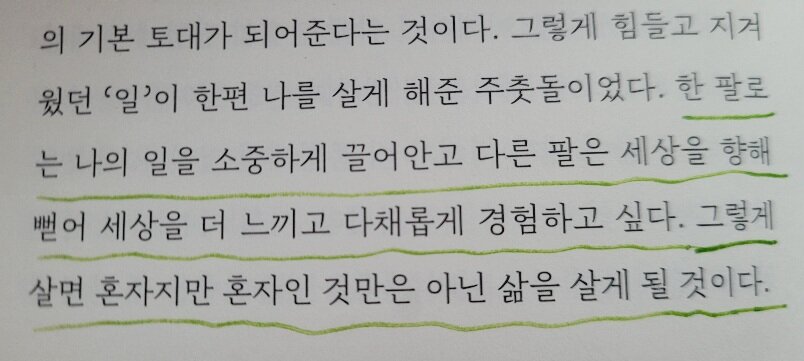 의 기본 토대가 되어준다는 것이다. 그렇게 힘들고 지겨
웠던 ‘일’이 한편 나를 살게 해준 주춧돌이었다. 한 팔로
는 나의 일을 소중하게 끌어안고 다른 팔은 세상을 향해
뻗어 세상을 더 느끼고 다채롭게 경험하고 싶다. 그렇게
살면 혼자지만 혼자인 것만은 아닌 삶을 살게 될 것이다.